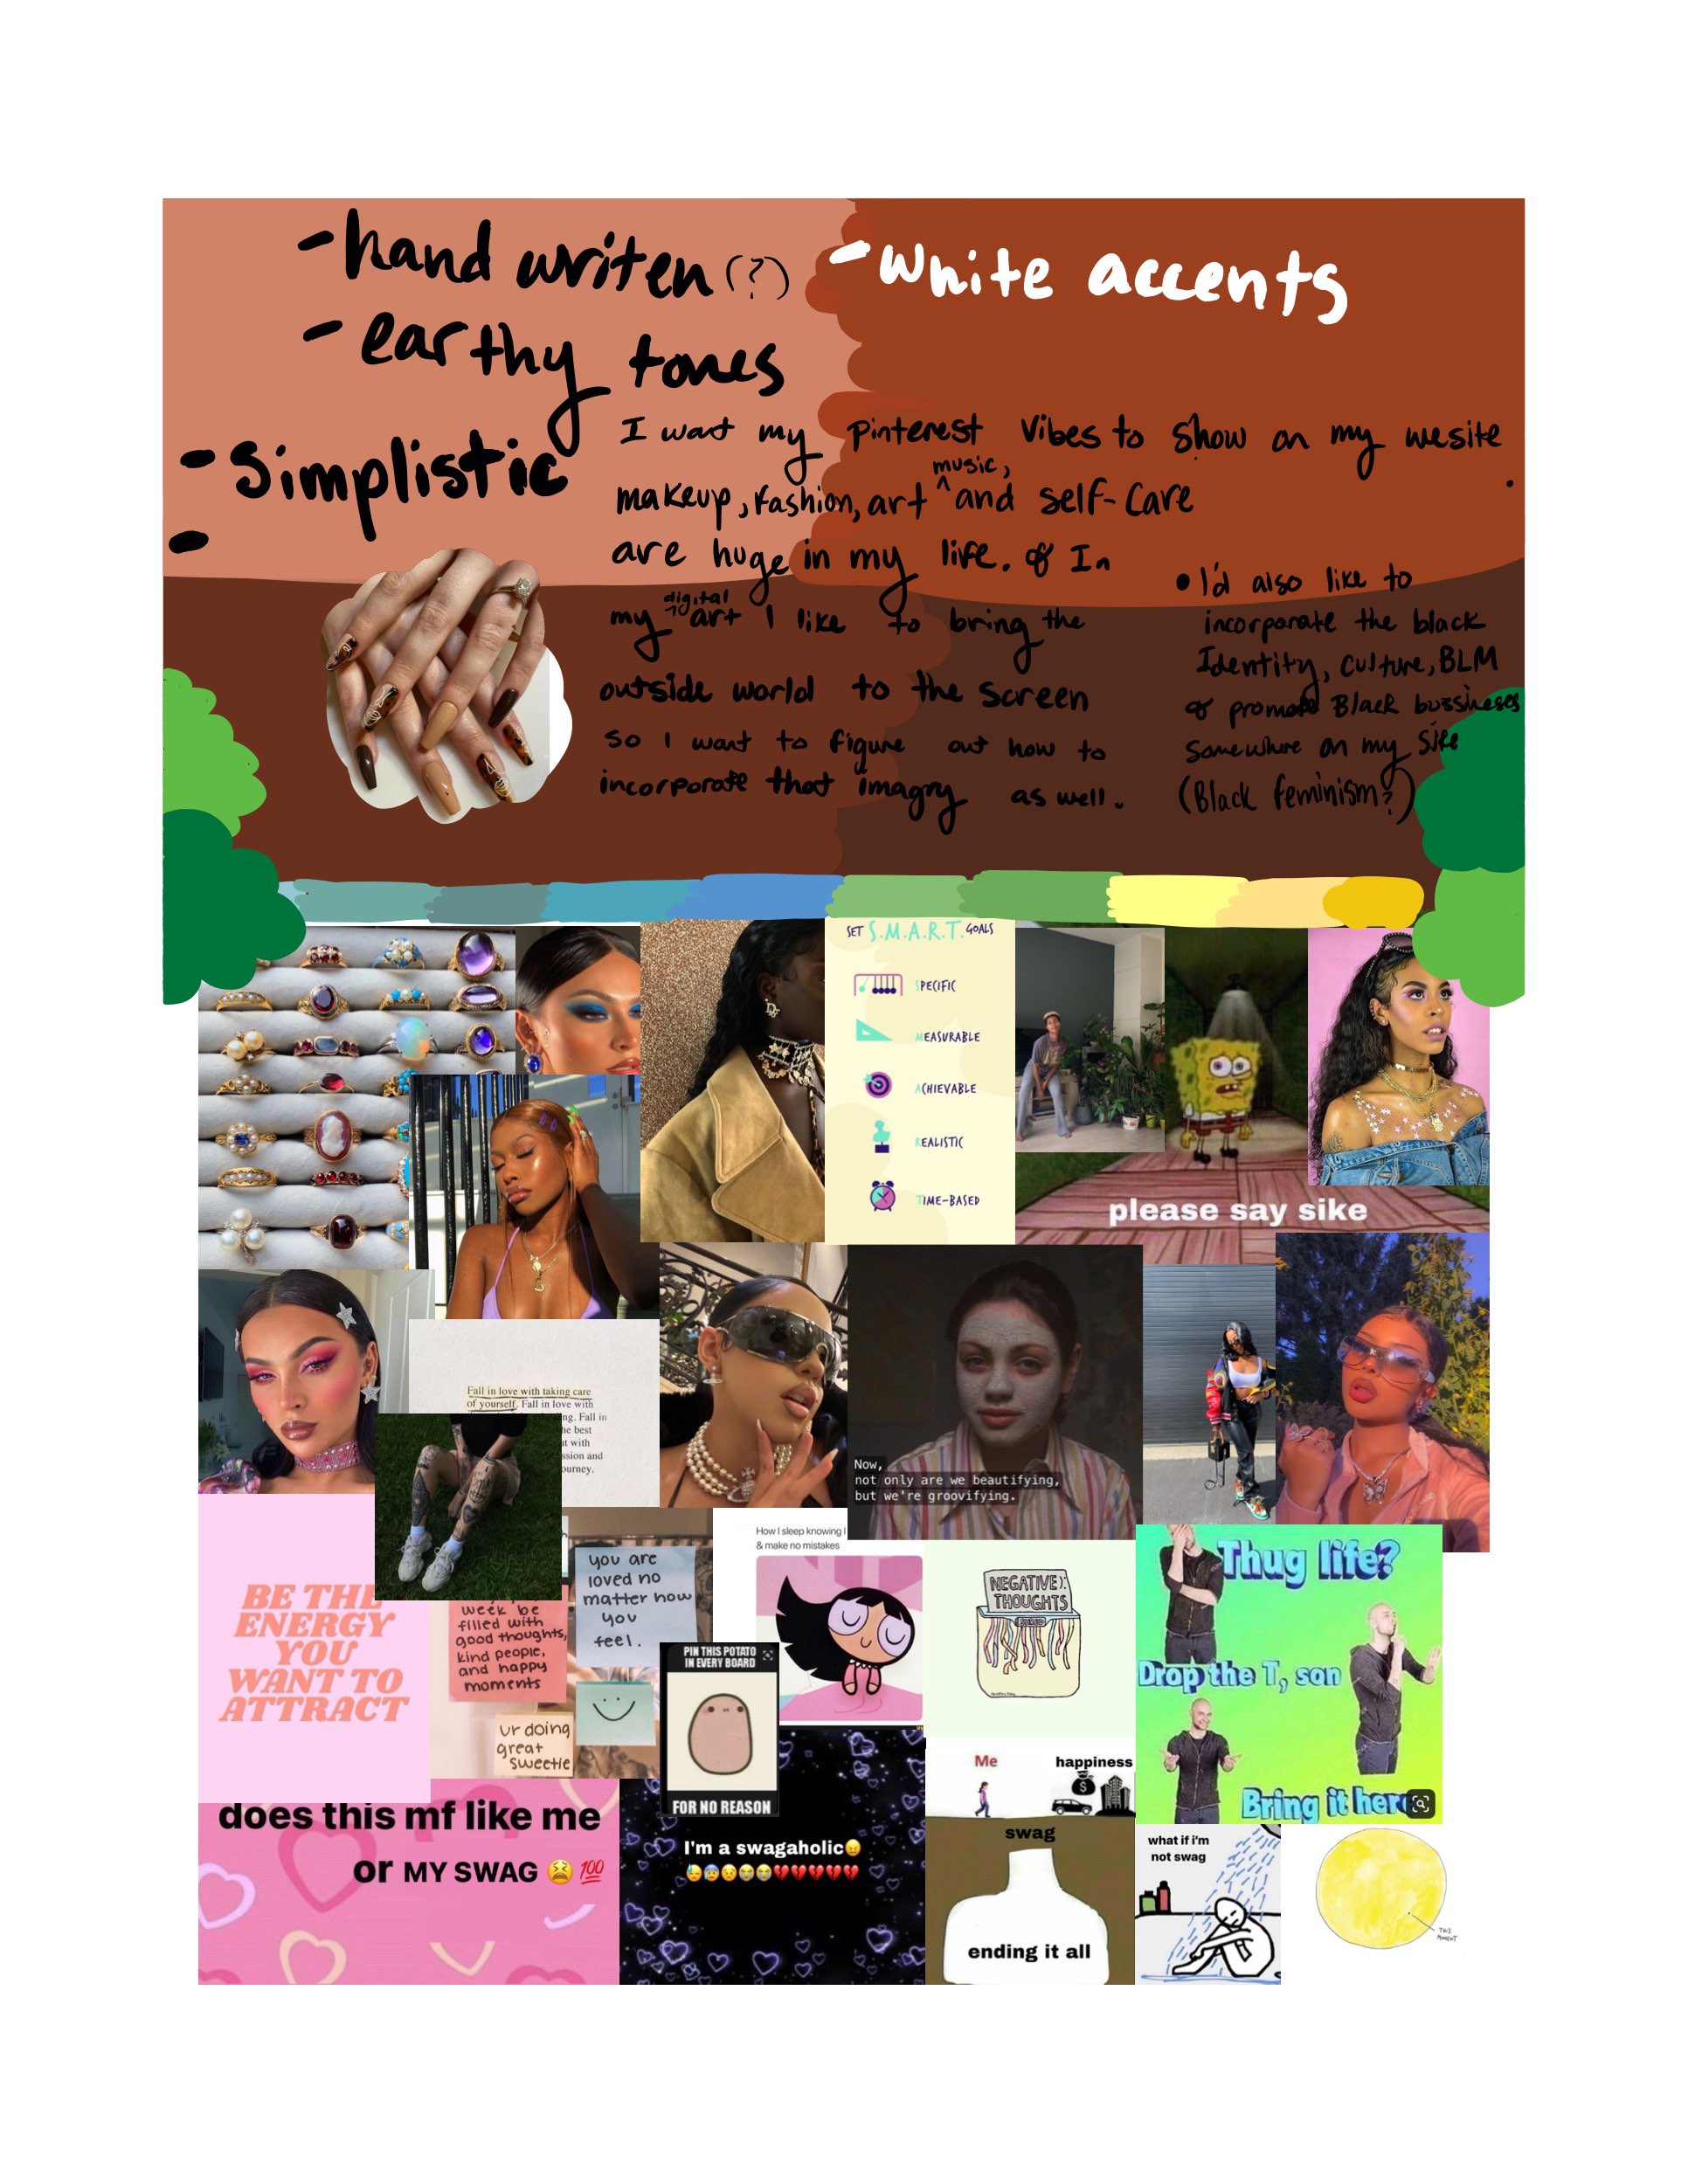 - hand writen (?)
- earthy tones
- Simplistic
-
- White accents
I want my Pinterest Vibes to show on my wesite
makeup, fashion, art ^ music, and self-care
are huge in my life. & In
my ^ digital art I like to bring the
outside world to the screen
so I want to figure out how to
incorporate that imagry as well.
• I'd also like to
incorporate the black
Identity, culture, BLM
& promote Black bussineses
somewhere on my site
(Black feminism?)
SET S.M.A.R.T. GOALS
SPECIFIC
MEASURABLE
ACHIEVABLE
REALISTIC
TIME-BASED
please say sike
Fall in love with taking care
of yourself. Fall in love with
ng. Fall in
he best
ut with
ssion and
ourney.
Now,
not only are we beautifying,
but we're groovifying.
BE THE
ENERGY
YOU
WANT TO
ATTRACT
week be
filled with
good thoughts,
kind people,
and happy
moments
you are
loved no
matter how
you
feel.
ur doing
great
sweetie
PIN THIS POTATO
IN EVERY BOARD
FOR NO REASON
How I sleep knowing I
& make no mistakes
NEGATIVE):
THOUGHTS
Thug life?
Drop the T, son
Bring it here
does this mf like me
or MY SWAG 😫 💯
I'm a swagaholic😖
😓😰😣😭😭💔💔💔💔💔
Me
happiness
$
swag
ending it all
what if i'm
not swag
THIS
MOMENT